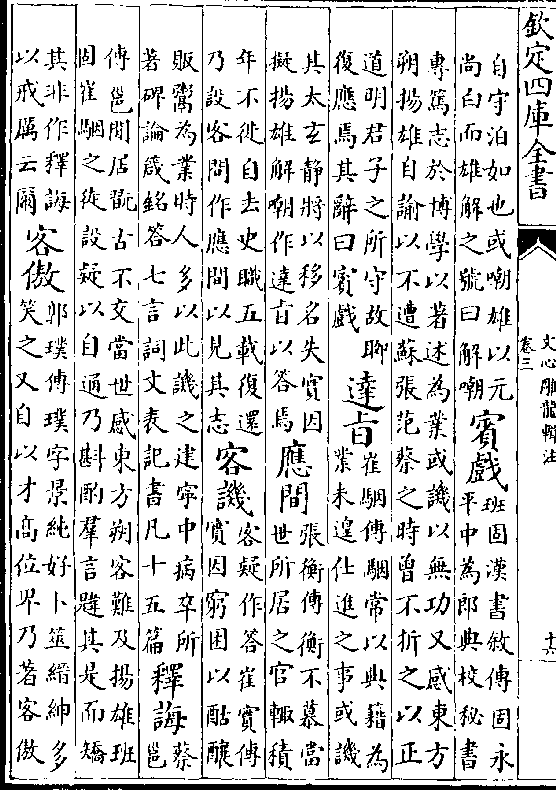 欽定四庫全書
文心雕龍輯注
卷三
十六
自守泊如也或嘲雄以元
尚白而雄解之號曰解嘲
賓戲
班固漢書敘傳固永
平中為郎典校秘書
專篤志於博學以著述為業或譏以無功又感東方
朔揚雄自諭以不遭蘇張范蔡之時曾不折之以正
道明君子之所守故聊
復應焉其辭曰賓戲
達㫖
崔駰傳駰常以典籍為
業未遑仕進之事或譏
其太玄靜將以移名失實因
擬揚雄解嘲作達㫖以答焉
應間
張衡傳衡不慕當
世所居之官輒積
年不徙自去史職五載復還
乃設客問作應間以見其志
客譏
客疑作答崔寔傳
寔因窮困以酤釀
販鬻為業時人多以此譏之建寧中病卒所
著碑論箴銘答七言詞文表記書凡十五篇
釋誨
蔡
邕
傳邕閒居翫古不交當世感東方朔客難及揚雄班
固崔駰之徒設疑以自通乃斟酌羣言韙其是而矯
其非作釋誨
以戒厲云爾
客傲
郭璞傳璞字景純好卜筮縉紳多
笑之又自以才高位卑乃著客傲